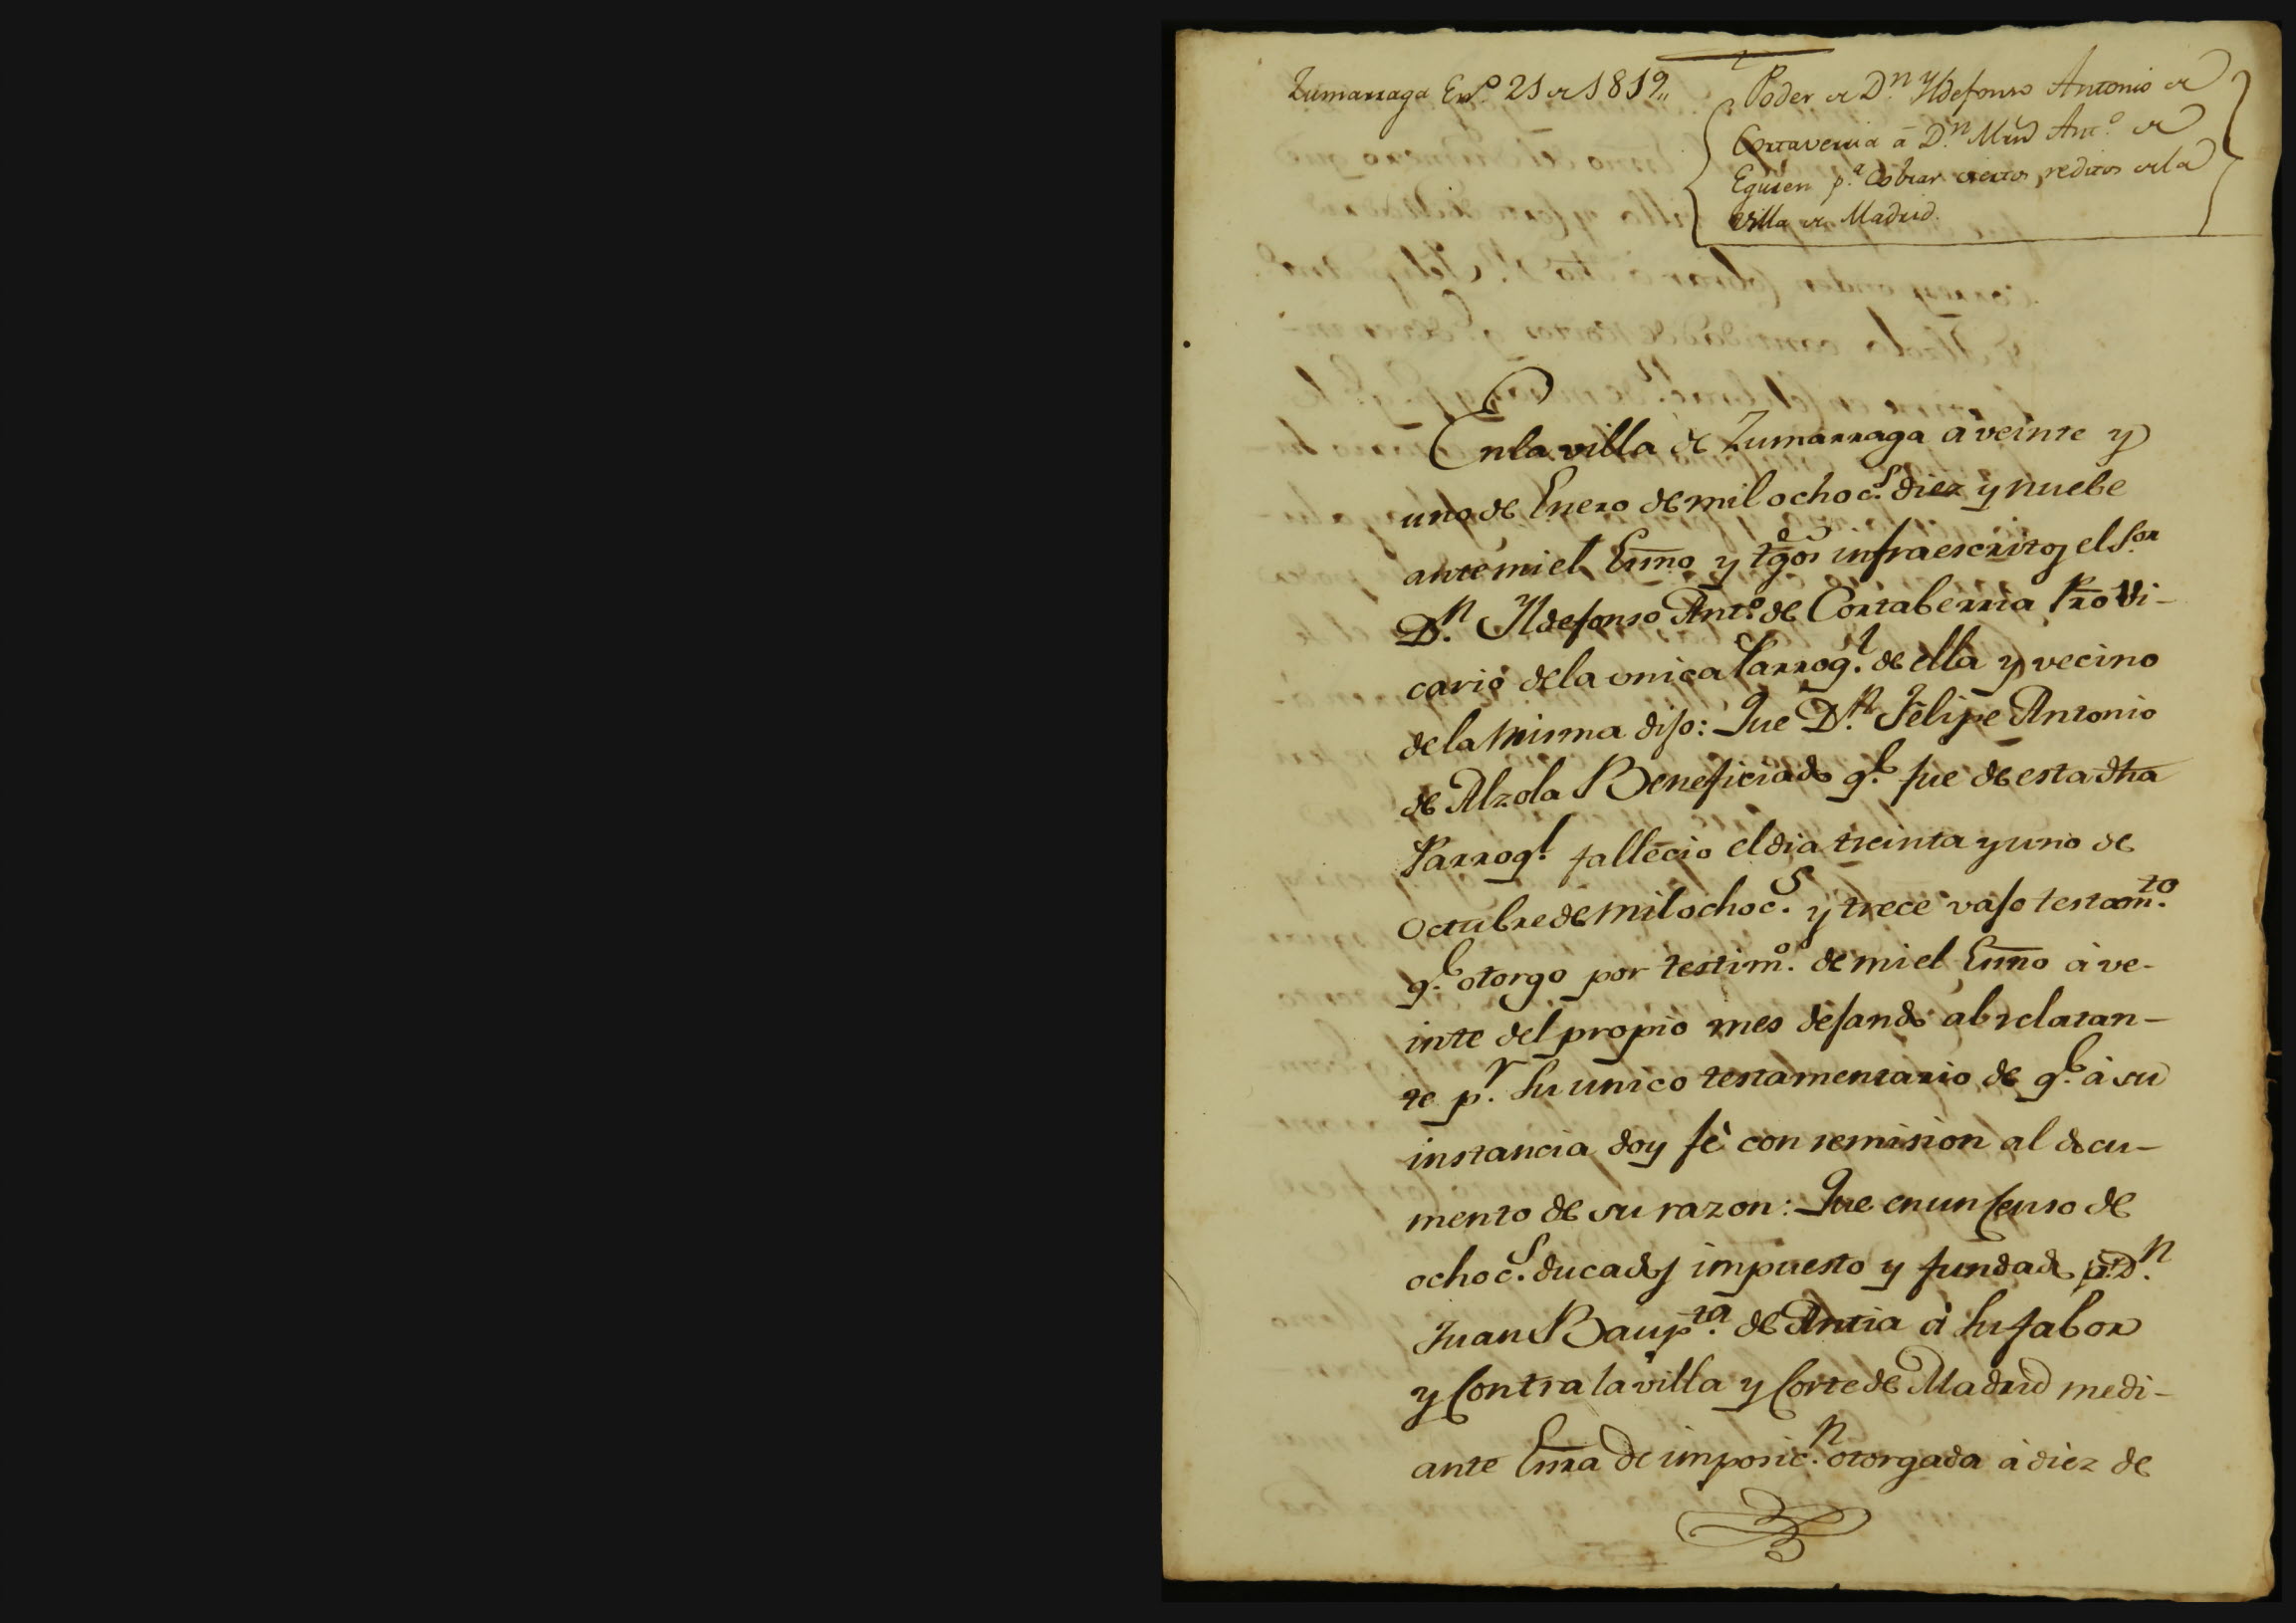 Zumarraga En.º 21 de 1819,,
Poder de D.n Yldefonso Antonio de
Cortaverria á D.n Man.l Ant.º de
Eguren p.a Cobrar ciertos reditos de la
villa de Madrid.
En la villa de Zumarraga a veinte y
uno de Enero de mil ochoc.s diez y nuebe
ante mi el Essno y tgos infraescritos el S.or
D.n Yldefonso Ant.º de Cortaberria Pro Vi-
cario de la unica Parroq.l de ella y vecino
de la misma dijo: Que D.n Felipe Antonio
de Alzola Beneficiado q.e fue de esta dha
Parroq.l fallecio el dia treinta y uno de
Octubre de mil ochoc.s y trece vajo testam.to
q.e otorgo por testim.º de mi el Essno à ve-
inte del propio mes dejando al relatan-
te p.r su unico testamentario de q.e à su
instancia doy fè con remision al docu-
mento de su razon: Que en un Censo de
ochoc.s ducados impuesto y fundado p.r D.n
Juan Baup.ta de Antia à su fabor
y Contra la villa y Corte de Madrid medi-
ante Essra de imposic.n otorgada à diez de